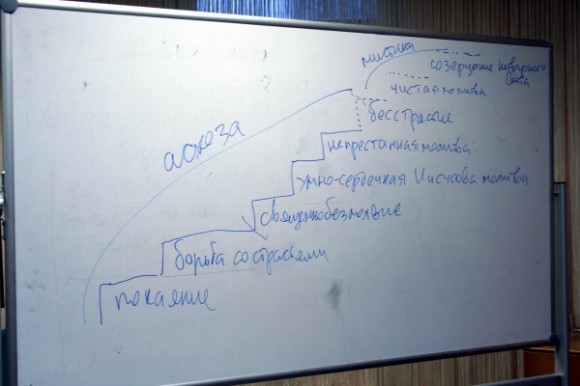 мистика
созерцание нетварного
света
чистая молитва
бесстрастие
аскеза
непрестанная молитва
умно-сердечная Иисусова молитва
священнобезмолвие
борьба со страстями
покаяние